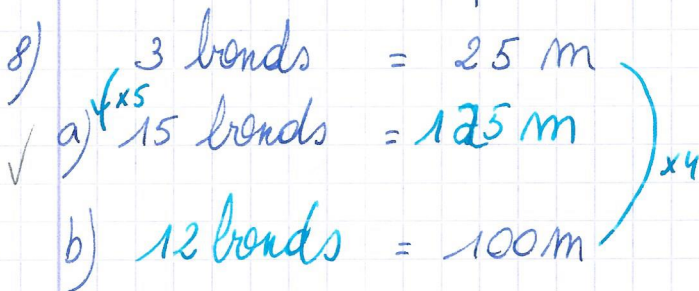 8) 3 bonds = 25 m
x5
a) 15 bonds = 125 m
x4
b) 12 bonds = 100 m